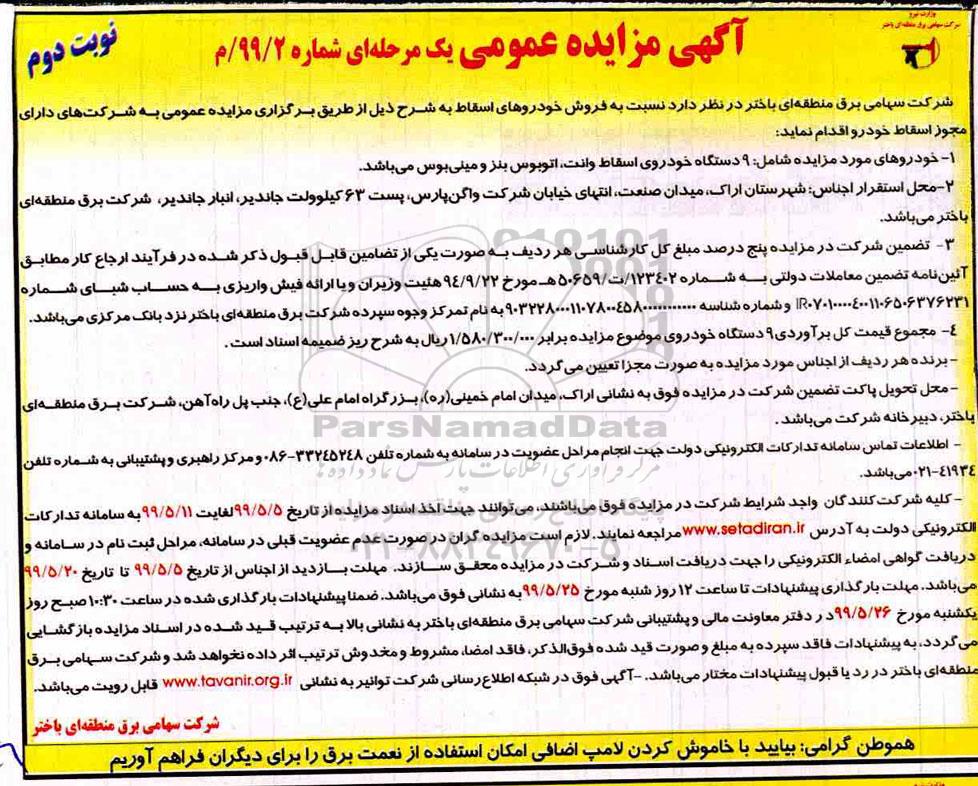 وزارت نیرو
شرکت سهامی برق منطقه‌ای باختر
نوبت دوم
آگهی مزایده عمومی یک مرحله‌ای شماره ۹۹/۲/م
شرکت سهامی برق منطقه‌ای باختر در نظر دارد نسبت به فروش خودروهای اسقاط به شرح ذیل از طریق برگزاری مزایده عمومی به شرکت‌های دارای
مجوز اسقاط خودرو اقدام نماید:
۱- خودروهای مورد مزایده شامل: ۹ دستگاه خودروی اسقاط وانت، اتوبوس بنز و مینی‌بوس می‌باشد.
۲-محل استقرار اجناس: شهرستان اراک، میدان صنعت، انتهای خیابان شرکت واگن‌پارس، پست ۶۳ کیلوولت جاندیر، انبار جاندیر، شرکت برق منطقه‌ای
باختر می‌باشد.
۳- تضمین شرکت در مزایده پنج درصد مبلغ کل کارشناسی هر ردیف به صورت یکی از تضامین قابل قبول ذکر شده در فرآیند ارجاع کار مطابق
آئین‌نامه تضمین معاملات دولتی به شماره ۱۲۳۴۰۲/ت/۵۰۶۵۹هـ مورخ ۹۴/۹/۲۲ هئیت وزیران و یا ارائه فیش واریزی به حساب شبای شماره
و شماره شناسه به نام تمرکز وجوه سپرده شرکت برق منطقه‌ای باختر نزد بانک مرکزی می‌باشد.
۴- مجموع قیمت کل برآوردی ۹ دستگاه خودروی موضوع مزایده برابر ۱/۵۸۰/۳۰۰/۰۰۰ ریال به شرح ریز ضمیمه اسناد است.
- برنده هر ردیف از اجناس مورد مزایده به صورت مجزا تعیین می‌گردد.
- محل تحویل پاکت تضمین شرکت در مزایده فوق به نشانی اراک، میدان امام خمینی(ره)، بزرگراه امام علی(ع)، جنب پل راه‌آهن، شرکت برق منطقه‌ای
باختر، دبیرخانه شرکت می‌باشد.
- اطلاعات تماس سامانه تدارکات الکترونیکی دولت جهت انجام مراحل عضویت در سامانه به شماره تلفن ۳۳۲۴۵۲۴۸-۰۸۶ و مرکز راهبری و پشتیبانی به شماره تلفن
۴۱۹۳۴-۰۲۱ می‌باشد.
- کلیه شرکت‌کنندگان واجد شرایط شرکت در مزایده فوق می‌باشند، می‌توانند جهت اخذ اسناد مزایده از تاریخ ۹۹/۵/۵ لغایت ۹۹/۵/۱۱ به سامانه تدارکات
الکترونیکی دولت به آدرس www.setadiran.ir مراجعه نمایند. لازم است مزایده گران در صورت عدم عضویت قبلی در سامانه، مراحل ثبت نام در سامانه و
دریافت گواهی امضاء الکترونیکی را جهت دریافت اسناد و شرکت در مزایده محقق سازند. مهلت بازدید از اجناس از تاریخ ۹۹/۵/۵ تا تاریخ ۹۹/۵/۲۰
می‌باشد. مهلت بارگذاری پیشنهادات تا ساعت ۱۲ روز شنبه مورخ ۹۹/۵/۲۵ به نشانی فوق می‌باشد. ضمنا پیشنهادات بارگذاری شده در ساعت ۱۰:۳۰ صبح روز
یکشنبه مورخ ۹۹/۵/۲۶ در دفتر معاونت مالی و پشتیبانی شرکت سهامی برق منطقه‌ای باختر به نشانی بالا به ترتیب قید شده در اسناد مزایده بازگشایی
می‌گردد، به پیشنهادات فاقد سپرده به مبلغ و صورت قید شده فوق‌الذکر، فاقد امضا، مشروط و مخدوش ترتیب اثر داده نخواهد شد و شرکت سهامی برق
منطقه‌ای باختر در رد یا قبول پیشنهادات مختار می‌باشد. -آگهی فوق در شبکه اطلاع‌رسانی شرکت توانیر به نشانی www.tavanir.org.ir قابل رویت می‌باشد.
شرکت سهامی برق منطقه‌ای باختر
هموطن گرامی: بیایید با خاموش کردن لامپ اضافی امکان استفاده از نعمت برق را برای دیگران فراهم آوریم
ParsNamadData
مرکز فرآوری اطلاعات پارس نماد داده‌ها
۰۲۱-۸۸۳۴۹۶۷۰-۵